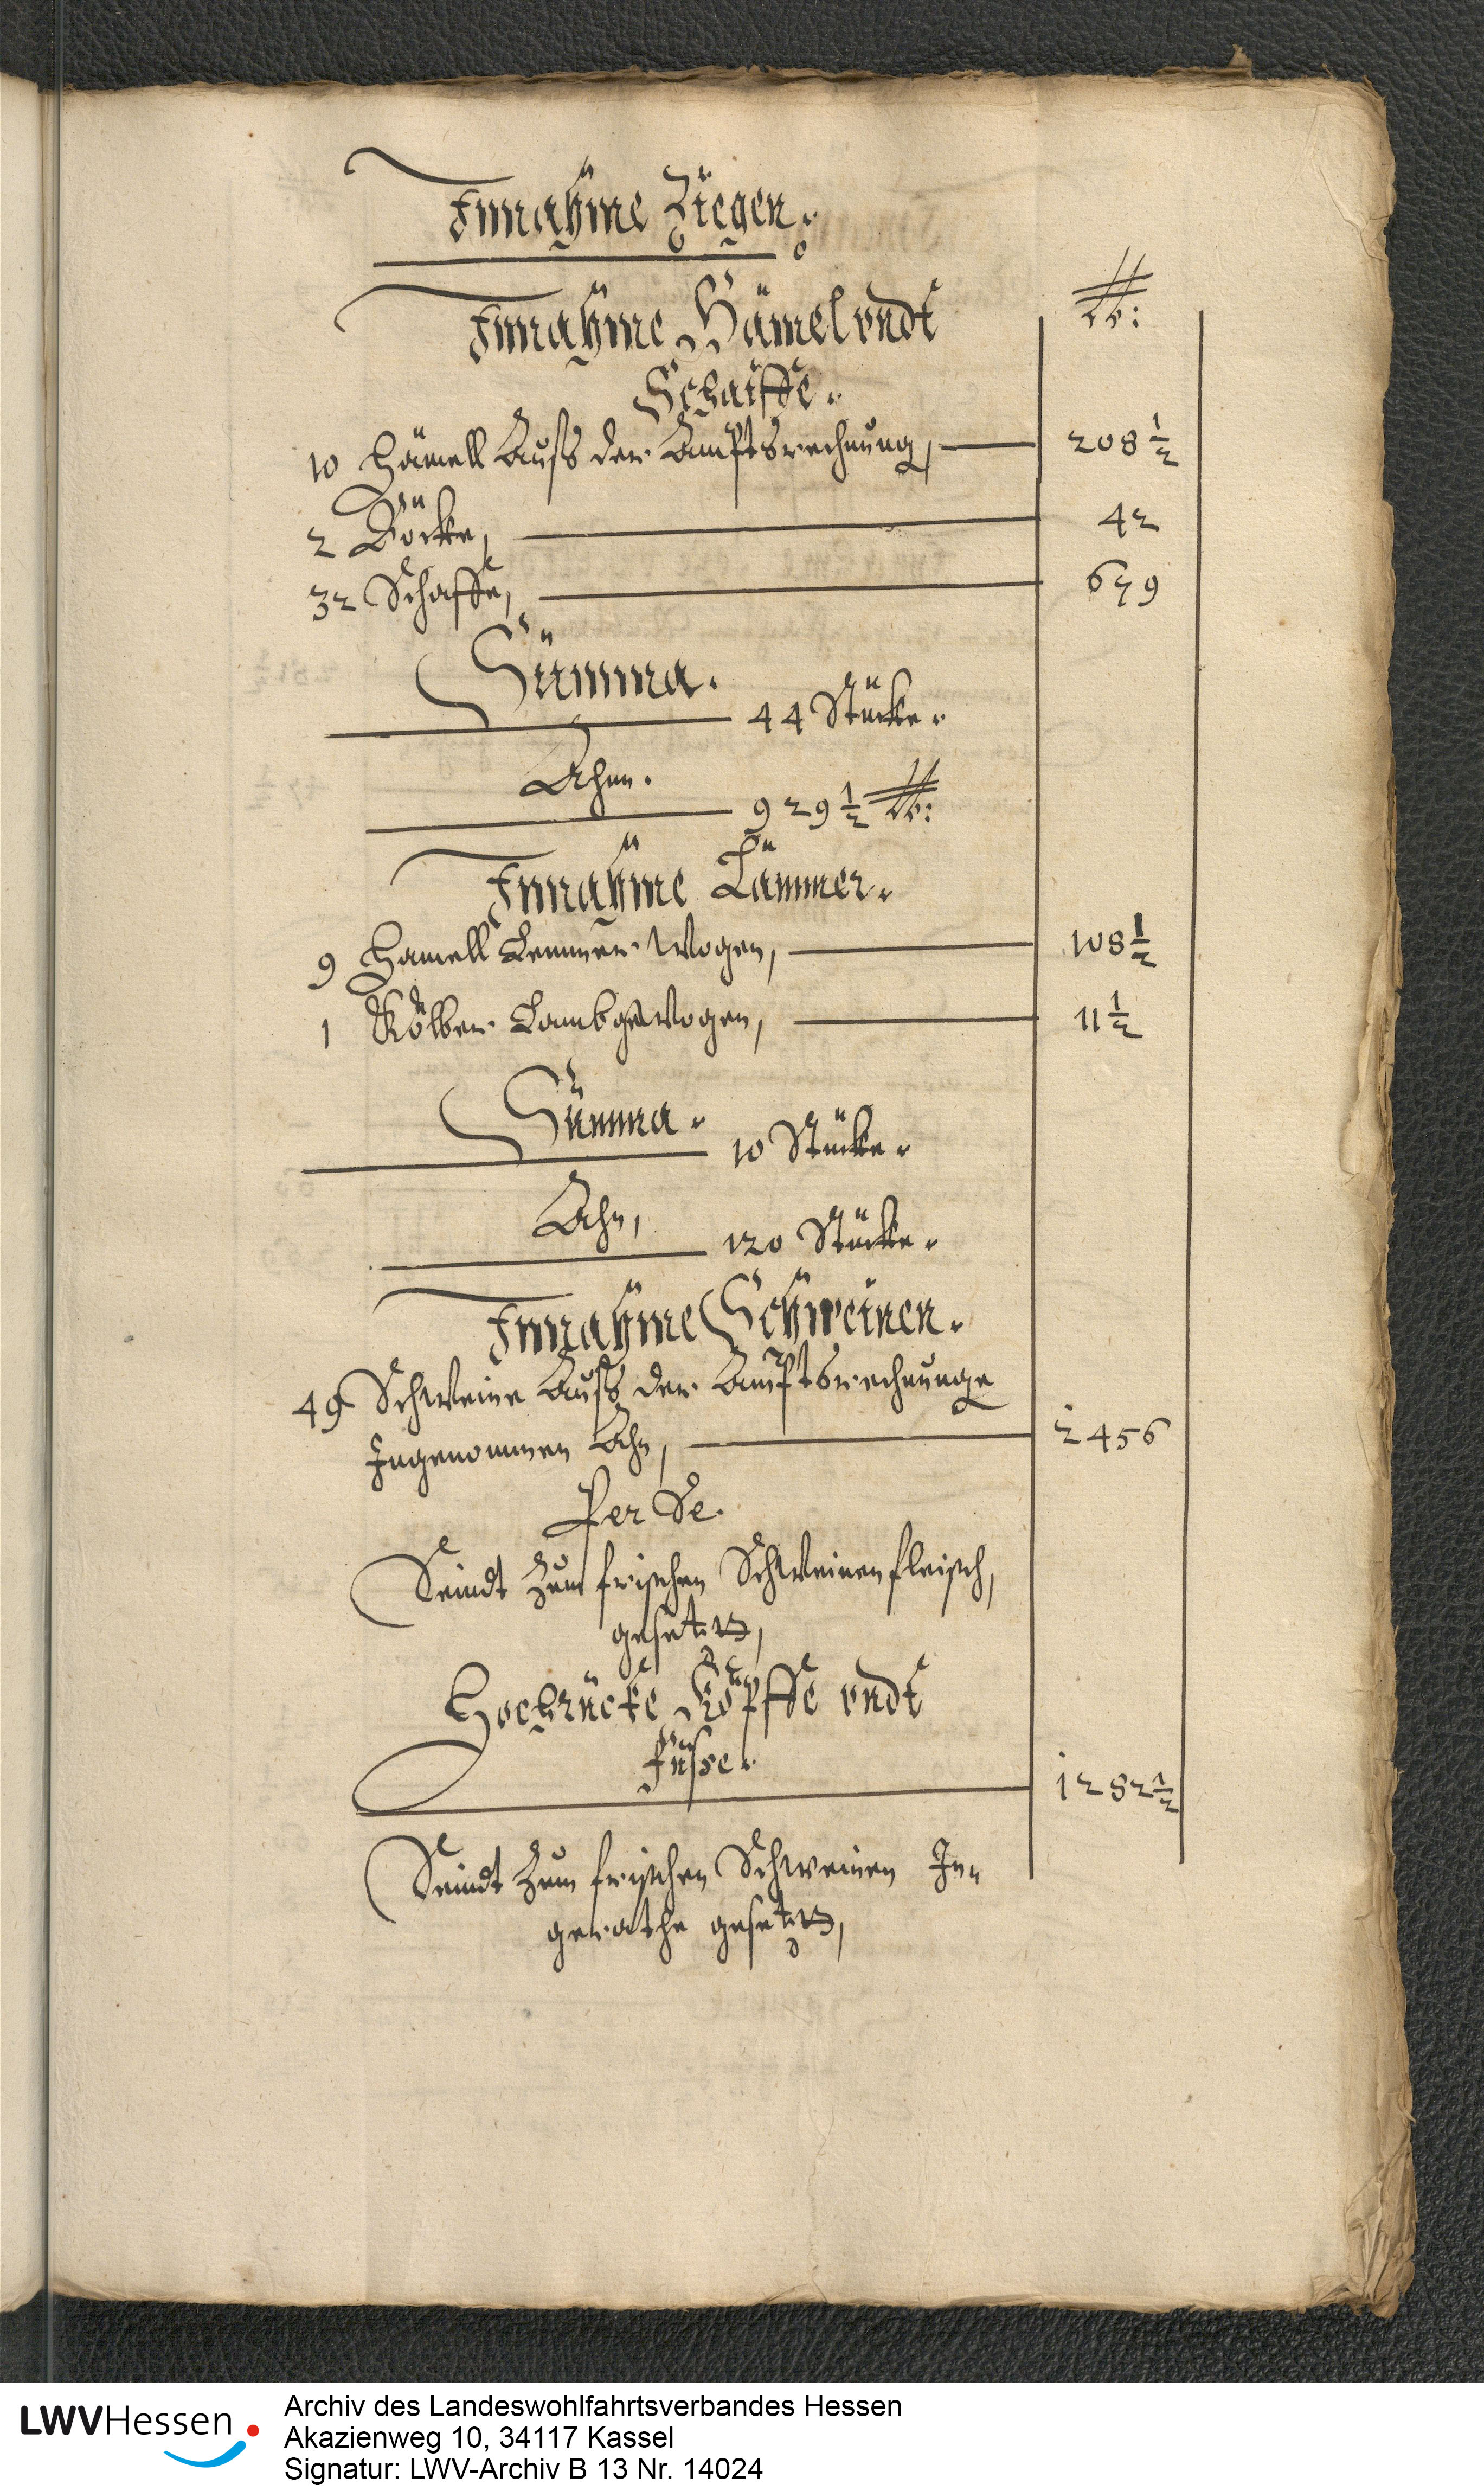 Innahme Ziegen.
0
Innahme Hämel vndt
Schaiffe.
lb:
10 Hämell Auß der Amptsrechnung, 208 1/2
2 Böcke, 42
32 Schaffe, 679
Summa.
44 Stücke.
Ahn.
929 1/2 lb:
Innahme Lämmer.
9 Hamell Lemmer Wogen, 108 1/2
1 Kölber Lamb gewogen, 11 1/2
Summa.
10 Stücke.
Ahn,
120 Stücke.
Innahme Schweinen.
49 Schweine Auß der Amptsrechnunge
Ingenommen Ahn, 2456
Per Se.
Seindt Zum frischen Schweinenfleisch,
gesetzt,
Hochrücke Köpffe vndt
füsse. 1282 1/2
Seindt Zum frischen Schweinen In-
gerathe gesetzt,
LWVHessen
Archiv des Landeswohlfahrtsverbandes Hessen
Akazienweg 10, 34117 Kassel
Signatur: LWV-Archiv B 13 Nr. 14024